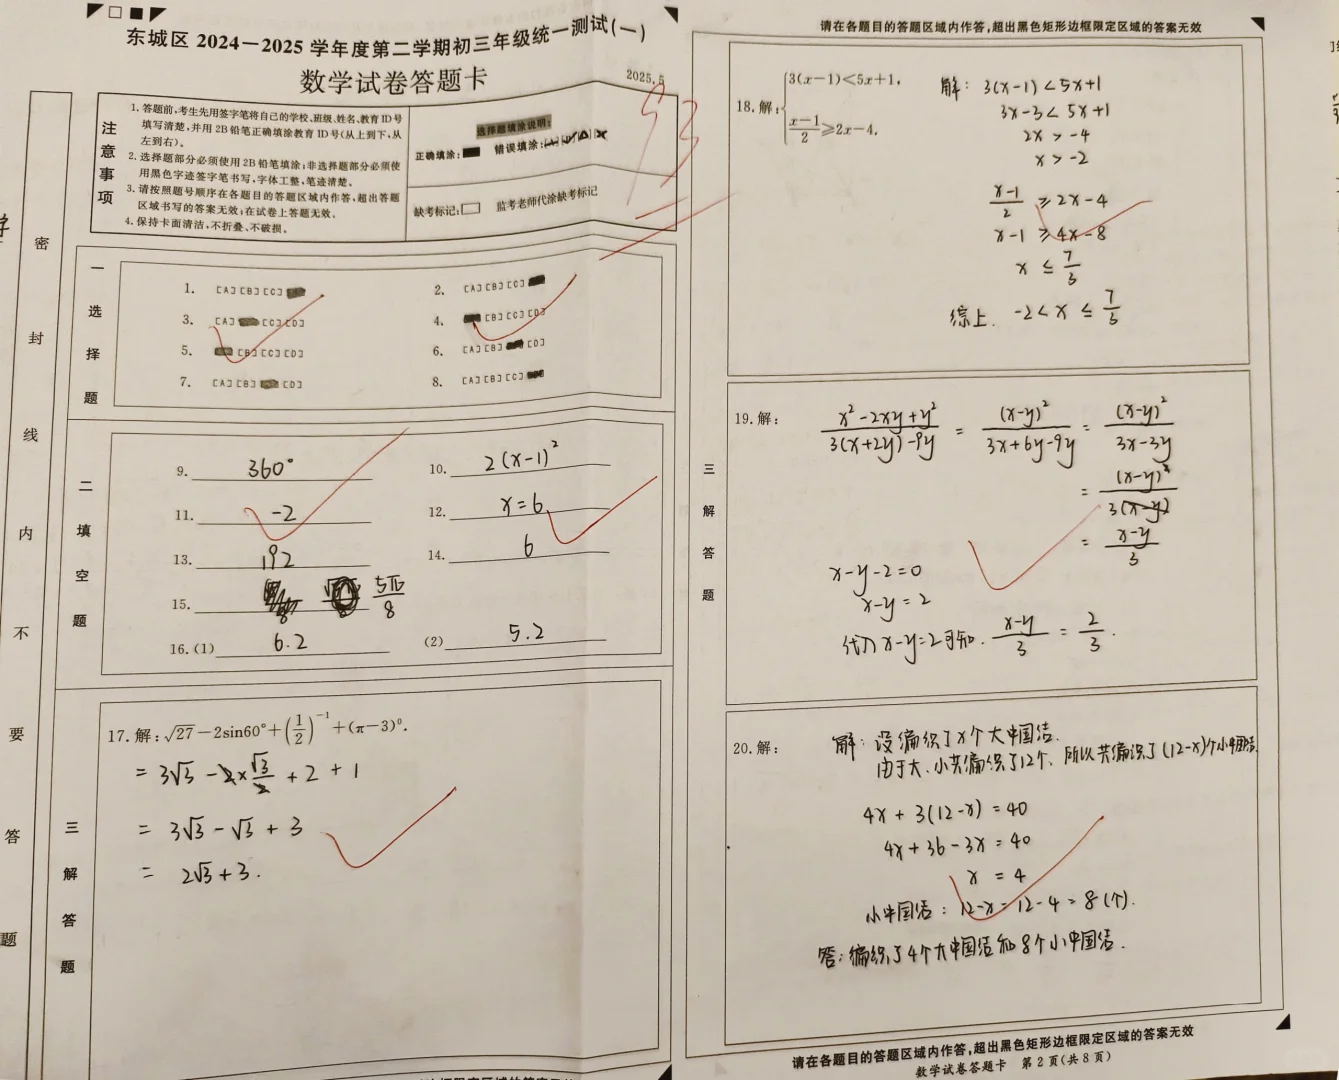 东城区 2024—2025 学年度第二学期初三年级统一测试(一)
数学试卷答题卡
2025.5
93
注意事项
1. 答题前,考生先用签字笔将自己的学校、班级、姓名、教育 ID 号
填写清楚,并用 2B 铅笔正确填涂教育 ID 号(从上到下,从
左到右)。
2. 选择题部分必须使用 2B 铅笔填涂;非选择题部分必须使
用黑色字迹签字笔书写,字体工整,笔迹清楚。
3. 请按照题号顺序在各题目的答题区域内作答,超出答题
区域书写的答案无效;在试卷上答题无效。
4. 保持卡面清洁,不折叠、不破损。
选择题填涂说明:
正确填涂: 错误填涂:
缺考标记: 监考老师代涂缺考标记
密封线内不要答题
一 选择题
1. [A] [B] [C]
2. [A] [B] [C]
3. [A] [C] [D]
4. [B] [C] [D]
5. [B] [C] [D]
6. [A] [B] [D]
7. [A] [B] [D]
8. [A] [B] [C]
二 填空题
9. 360°
10. 2(x-1)²
11. -2
12. x=6
13. 192
14. 6
15. 5π/8
16. (1) 6.2 (2) 5.2
三 解答题
17. 解: √27 -2sin60°+(1/2)⁻¹+(π-3)⁰.
= 3√3 - 2×√3/2 + 2 + 1
= 3√3 - √3 + 3
= 2√3 + 3.
请在各题目的答题区域内作答,超出黑色矩形边框限定区域的答案无效
三 解答题
18. 解: 3(x-1)<5x+1,
(x-1)/2≥2x-4.
解: 3(x-1)<5x+1
3x-3<5x+1
2x>-4
x>-2
(x-1)/2 ≥ 2x-4
x-1 ≥ 4x-8
x ≤ 7/3
综上. -2<x≤7/3
19. 解: (x²-2xy+y²)/(3(x+2y)-9y) = (x-y)²/(3x+6y-9y) = (x-y)²/(3x-3y)
= (x-y)²/(3(x-y))
= (x-y)/3
x-y-2=0
x-y=2
代入x-y=2可知. (x-y)/3 = 2/3.
20. 解: 解: 设编织了x个大中国结.
由于大、小共编织了12个、所以共编织了(12-x)个小中国结.
4x+3(12-x)=40
4x+36-3x=40
x=4
小中国结: 12-x=12-4=8(个).
答: 编织了4个大中国结和8个小中国结.
请在各题目的答题区域内作答,超出黑色矩形边框限定区域的答案无效
数学试卷答题卡 第 2 页(共 8 页)